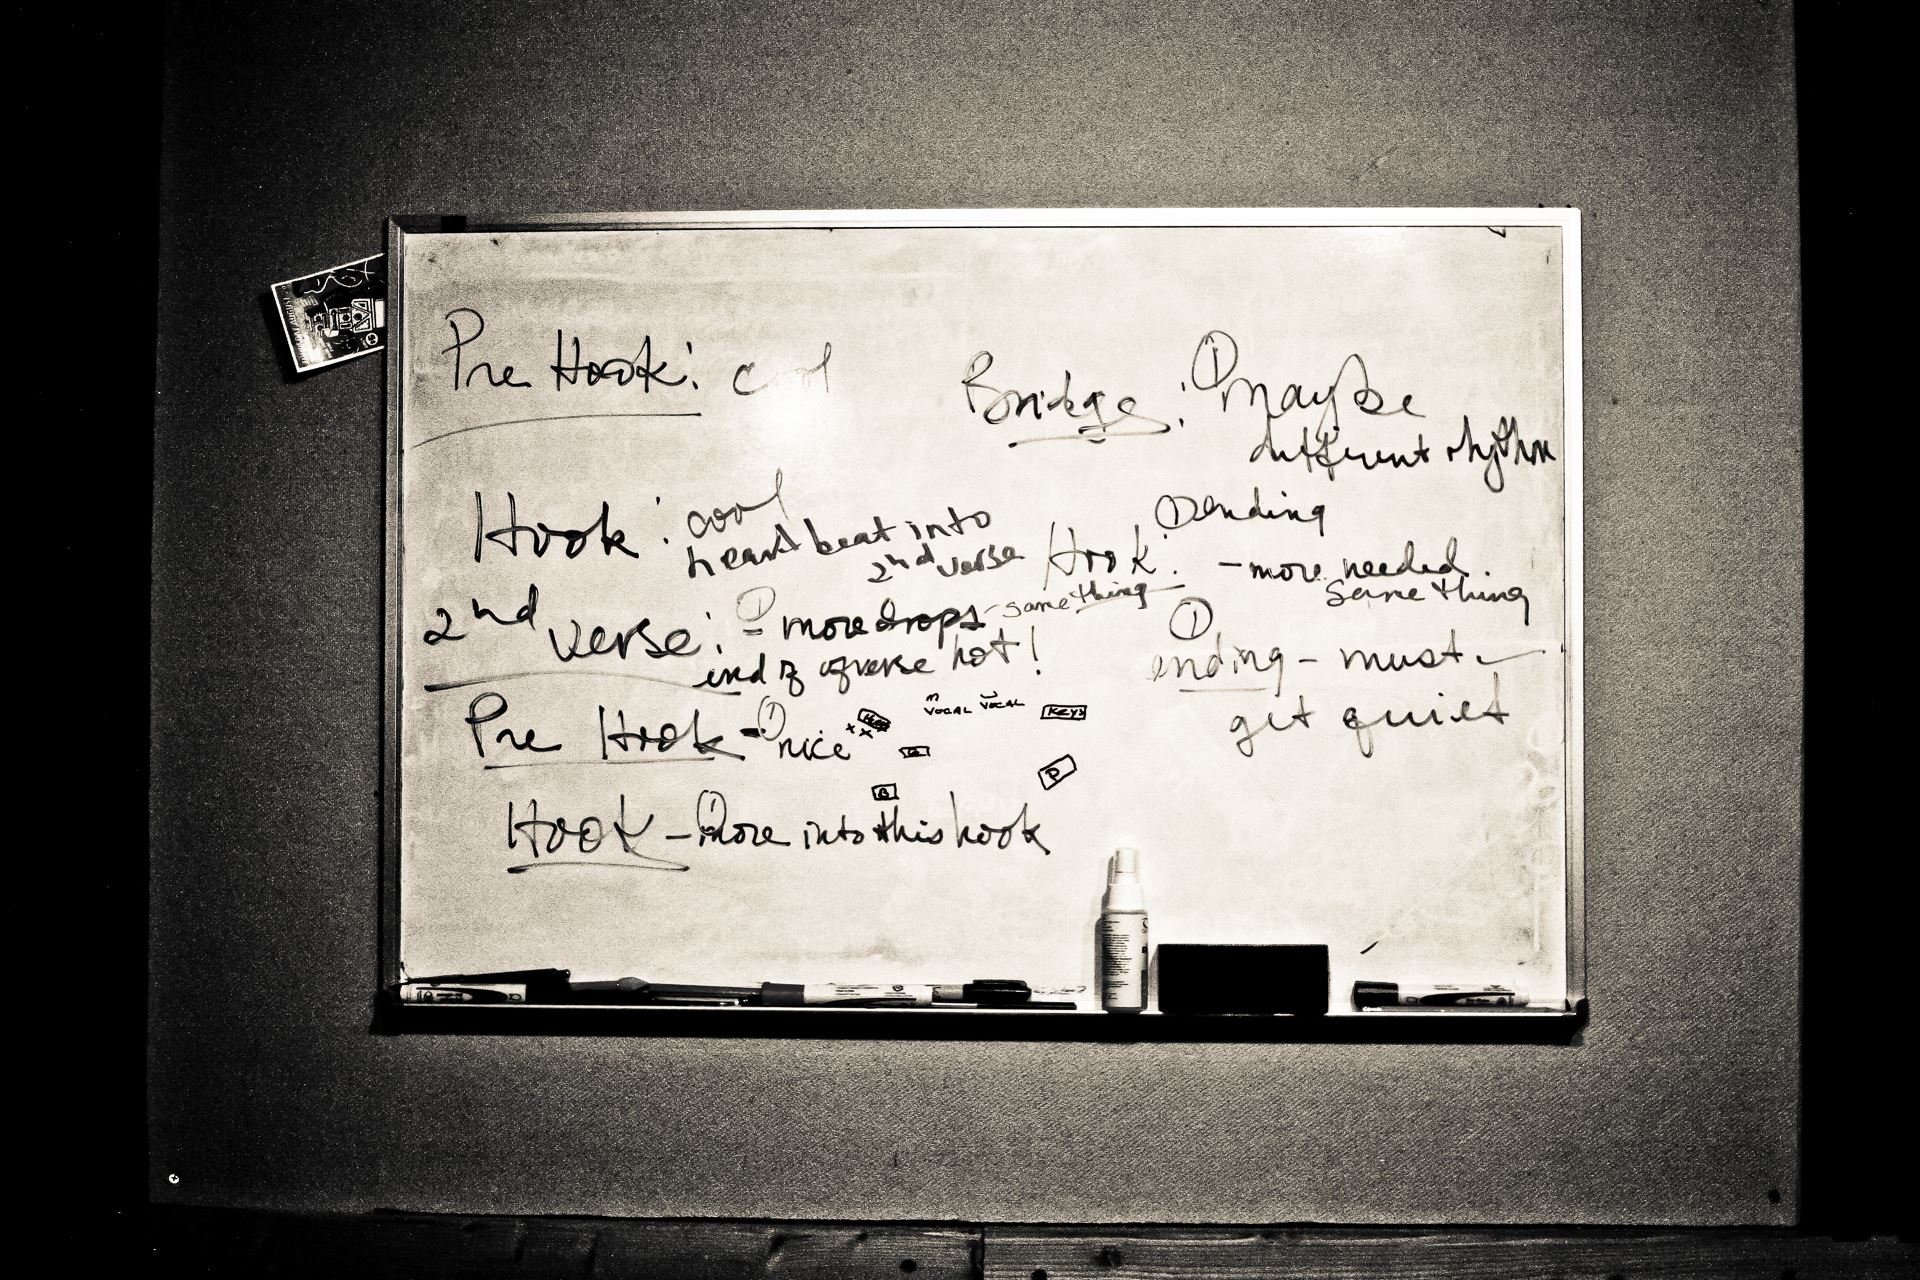 Pre Hook: cool
Hook: cool
heart beat into
2nd verse
2nd verse: ① - more drops - same thing
end of verse hot!
Pre Hook - ① nice
M VOCAL VOCAL KEYS
G
B
P
Hook - ① more into this hook
Bridge: ① maybe
different rhythm
① ending
Hook: - more needed.
same thing
①
ending - must
get quiet